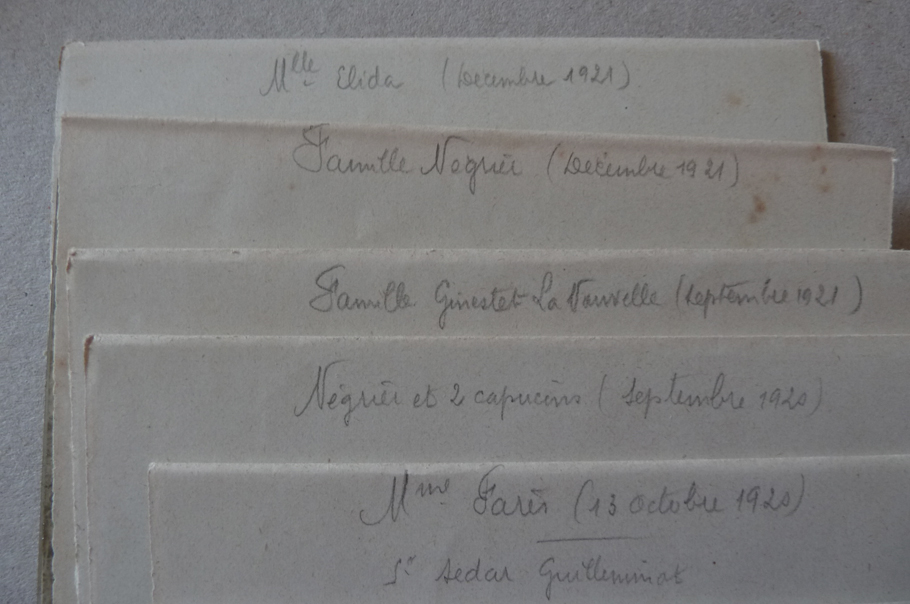 Mlle Elida (Decembre 1921)
Famille Negrier (Décembre 1921)
Famille Ginestet La Nouvelle (septembre 1921)
Négrier et 2 capucins (Septembre 1920)
Mme Farès (13 octobre 1920)
Sr Sedar Guilleminot